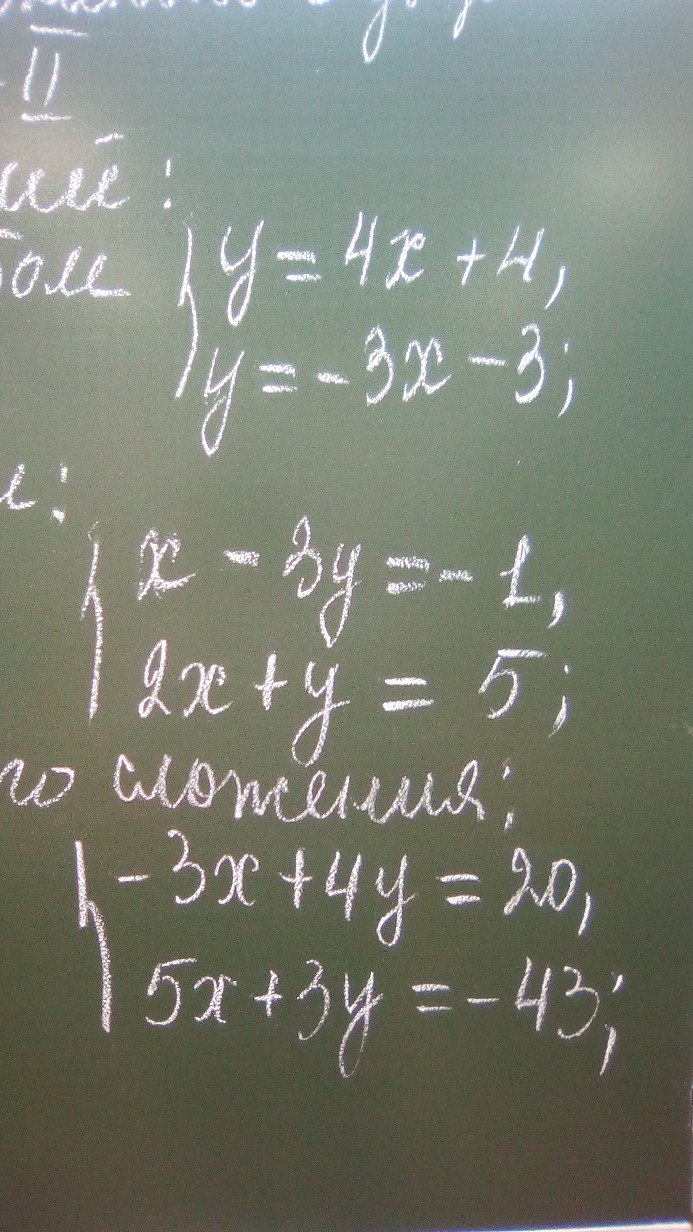 II
ший:
бом { y = 4x + 4,
y = -3x - 3;
м:
{ x - 3y = -1,
2x + y = 5;
го сложения:
{ -3x + 4y = 20,
5x + 3y = -43;